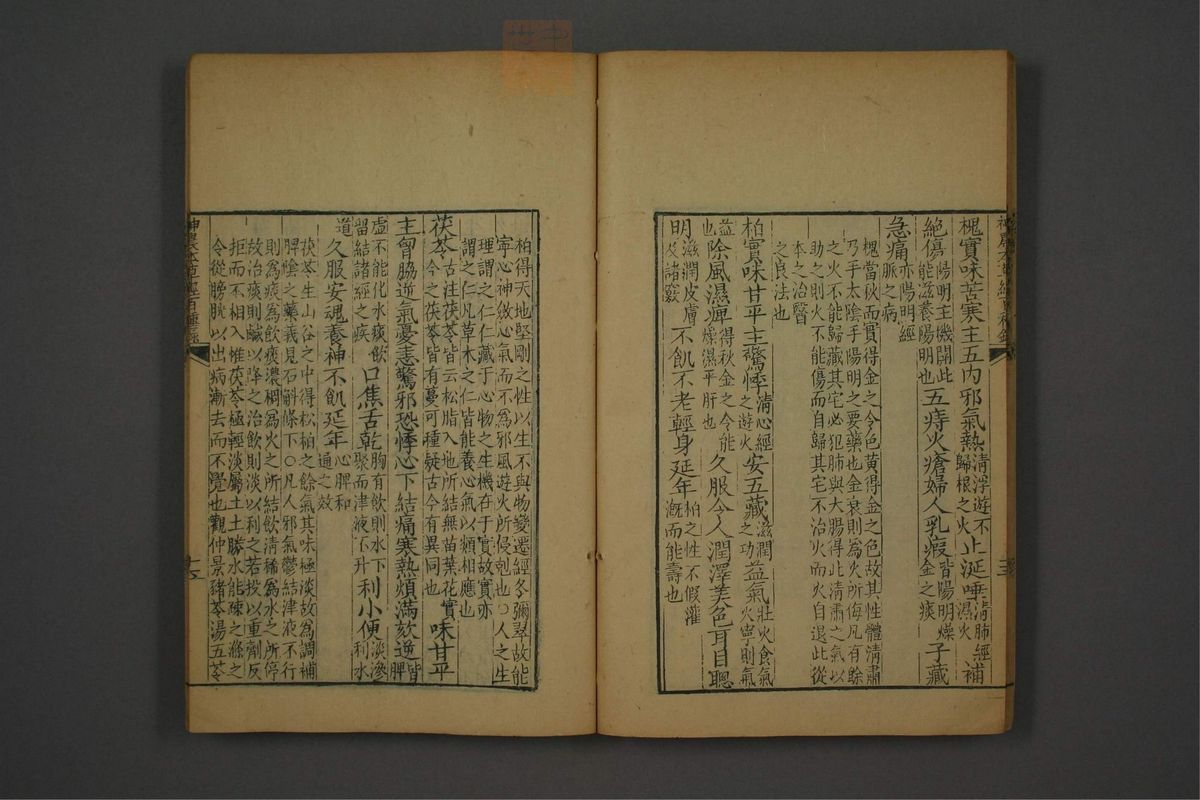 槐實味苦寒主五内邪氣熱清浮遊不歸根之火止涎唾清肺經濕火補
絶傷陽明主機關此能滋養陽明也五痔火瘡婦人乳瘕皆陽明燥金之痰子藏
急痛亦陽明經脈之病
槐當秋而實得金之令色黄得金之色故其性體清肅
乃手太陰手陽明之要藥也金衰則為火所侮凡有餘
之火不能歸藏其宅必犯肺與大腸得此清肅之氣以
助之則火不能傷而自歸其宅不治火而火自退此從
本之治醫
之良法也
柏實味甘平主驚悸清心經之遊火安五藏滋潤之功益氣壯火食氣火寧則氣
益也除風濕痺得秋金之令能燥濕平肝也久服令人潤澤美色耳目聰
明滋潤皮膚及諸竅不飢不老輕身延年柏之性不假灌溉而能壽也
柏得天地堅剛之性以生不與物變遷經冬彌翠故能
寧心神斂心氣而不為邪風遊火所侵剋也○人之生
理謂之仁仁藏于心物之生機在于實故實亦
謂之仁凡草木之仁皆能養心氣以類相應也
茯苓古注茯苓皆云松脂入地所結無苗葉花實今之茯苓皆有蔓可種疑古今有異同也味甘平
主胷脇逆氣憂恚驚邪恐悸心下結痛寒熱煩滿欬逆皆脾
虛不能化水痰飲留結諸經之疾口焦舌乾胸有飲則水下聚而津液不升利小便淡滲利水
道久服安魂養神不飢延年心脾和通之效
茯苓生山谷之中得松柏之餘氣其味極淡故為調補
脾陰之藥義見石斛條下○凡人邪氣鬱結津液不行
則為痰為飲痰濃稠為火之所結飲清稀為水之所停
故治痰則鹹以降之治飲則淡以利之若投以重劑反
拒而不相入惟茯苓極輕淡屬土土勝水能疎之滌之
令從膀胱以出病漸去而不覺也觀仲景豬苓湯五苓
神農本草經百種錄